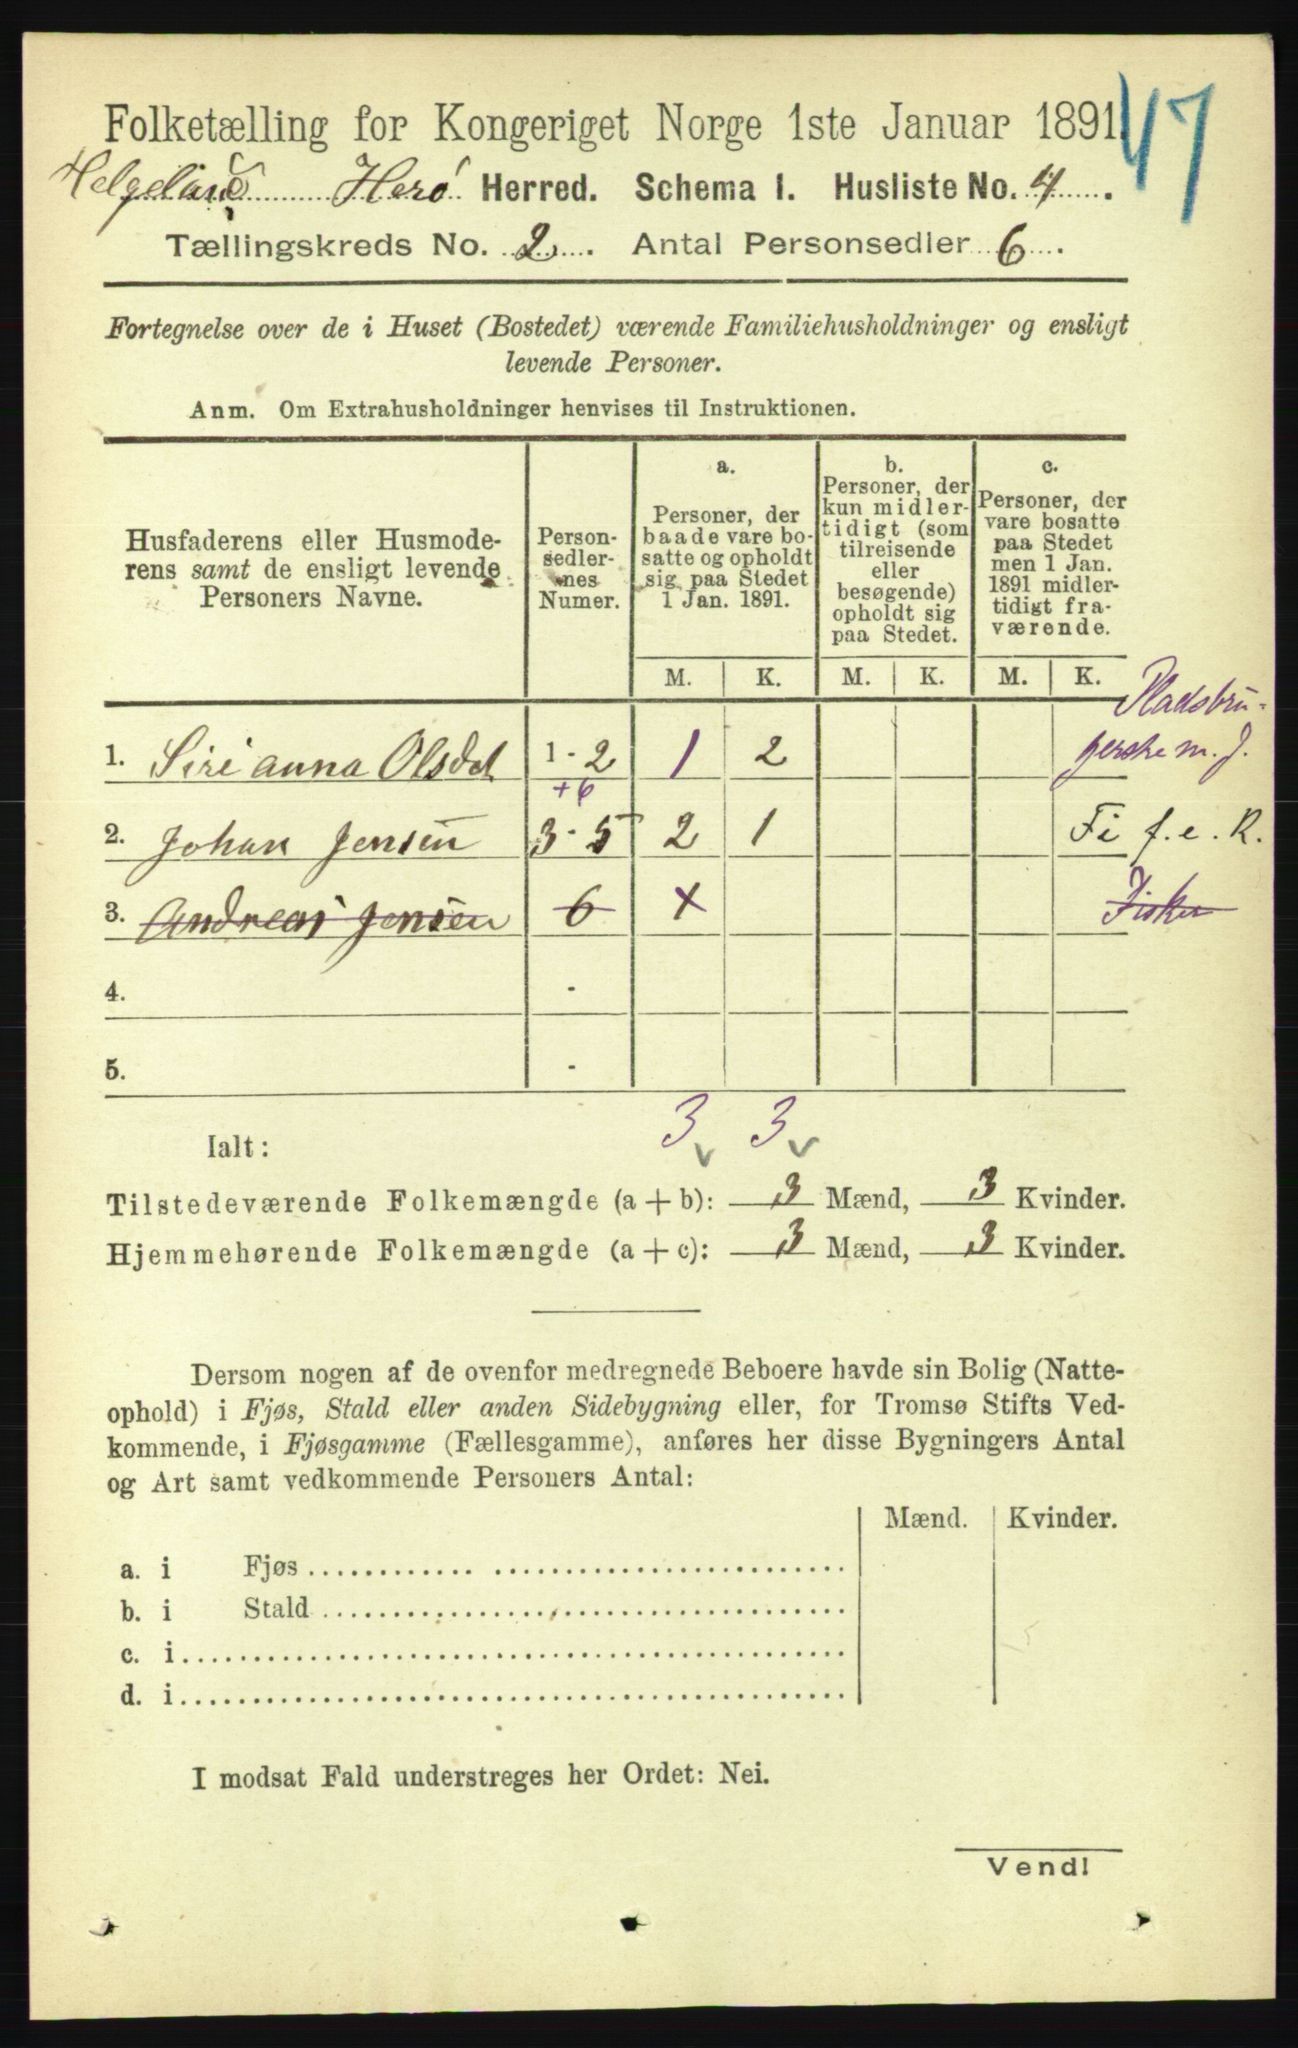 47
Folketælling for Kongeriget Norge 1ste Januar 1891.
Helgeland Herø Herred. Schema 1. Husliste No. 4.
Tællingskreds No. 2. Antal Personsedler 6.
Fortegnelse over de i Huset (Bostedet) værende Familiehusholdninger og ensligt
levende Personer.
Anm. Om Extrahusholdninger henvises til Instruktionen.
Husfaderens eller Husmode-
rens samt de ensligt levende
Personers Navne.
Person-
sedler-
nes
Numer.
a.
Personer, der
baade vare bo-
satte og opholdt
sig paa Stedet
1 Jan. 1891.
b.
Personer, der
kun midler-
tidigt (som
tilreisende
eller
besøgende)
opholdt sig
paa Stedet.
c.
Personer, der
vare bosatte
paa Stedet
men 1 Jan.
1891 midler-
tidigt fra-
værende.
M. K. M. K. M. K.
Pladsbru-
1. Siri anna Olsdat 1 - 2 1 2 gerske m. J.
+6
2. Johan Jensen 3 - 5 2 1 Fi f. e. R.
3. Andreas Jensen 6 x Fisker
4. -
5. -
Ialt: 3 3
Tilstedeværende Folkemængde (a + b): 3 Mænd, 3 Kvinder.
Hjemmehørende Folkemængde (a + c): 3 Mænd, 3 Kvinder.
Dersom nogen af de ovenfor medregnede Beboere havde sin Bolig (Natte-
ophold) i Fjøs, Stald eller anden Sidebygning eller, for Tromsø Stifts Ved-
kommende, i Fjøsgamme (Fællesgamme), anføres her disse Bygningers Antal
og Art samt vedkommende Personers Antal:
Mænd. Kvinder.
a. i Fjøs
b. i Stald
c. i
d. i
I modsat Fald understreges her Ordet: Nei.
Vend!